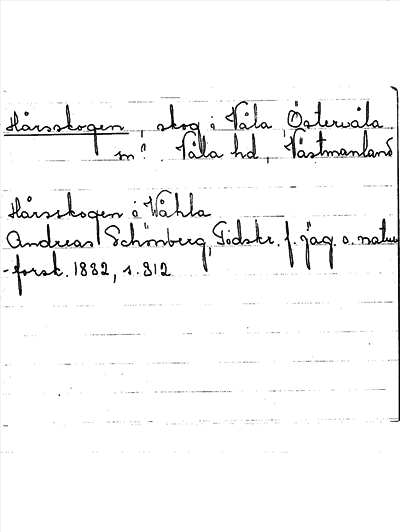 Hårsskogen, skog i Våla Östervåla
m? Våla hd, Västmanland
Hårsskogen i Wåhla
Andreas Schönberg, Tidskr. f. jäg. o. natur
-forsk. 1832, s. 312